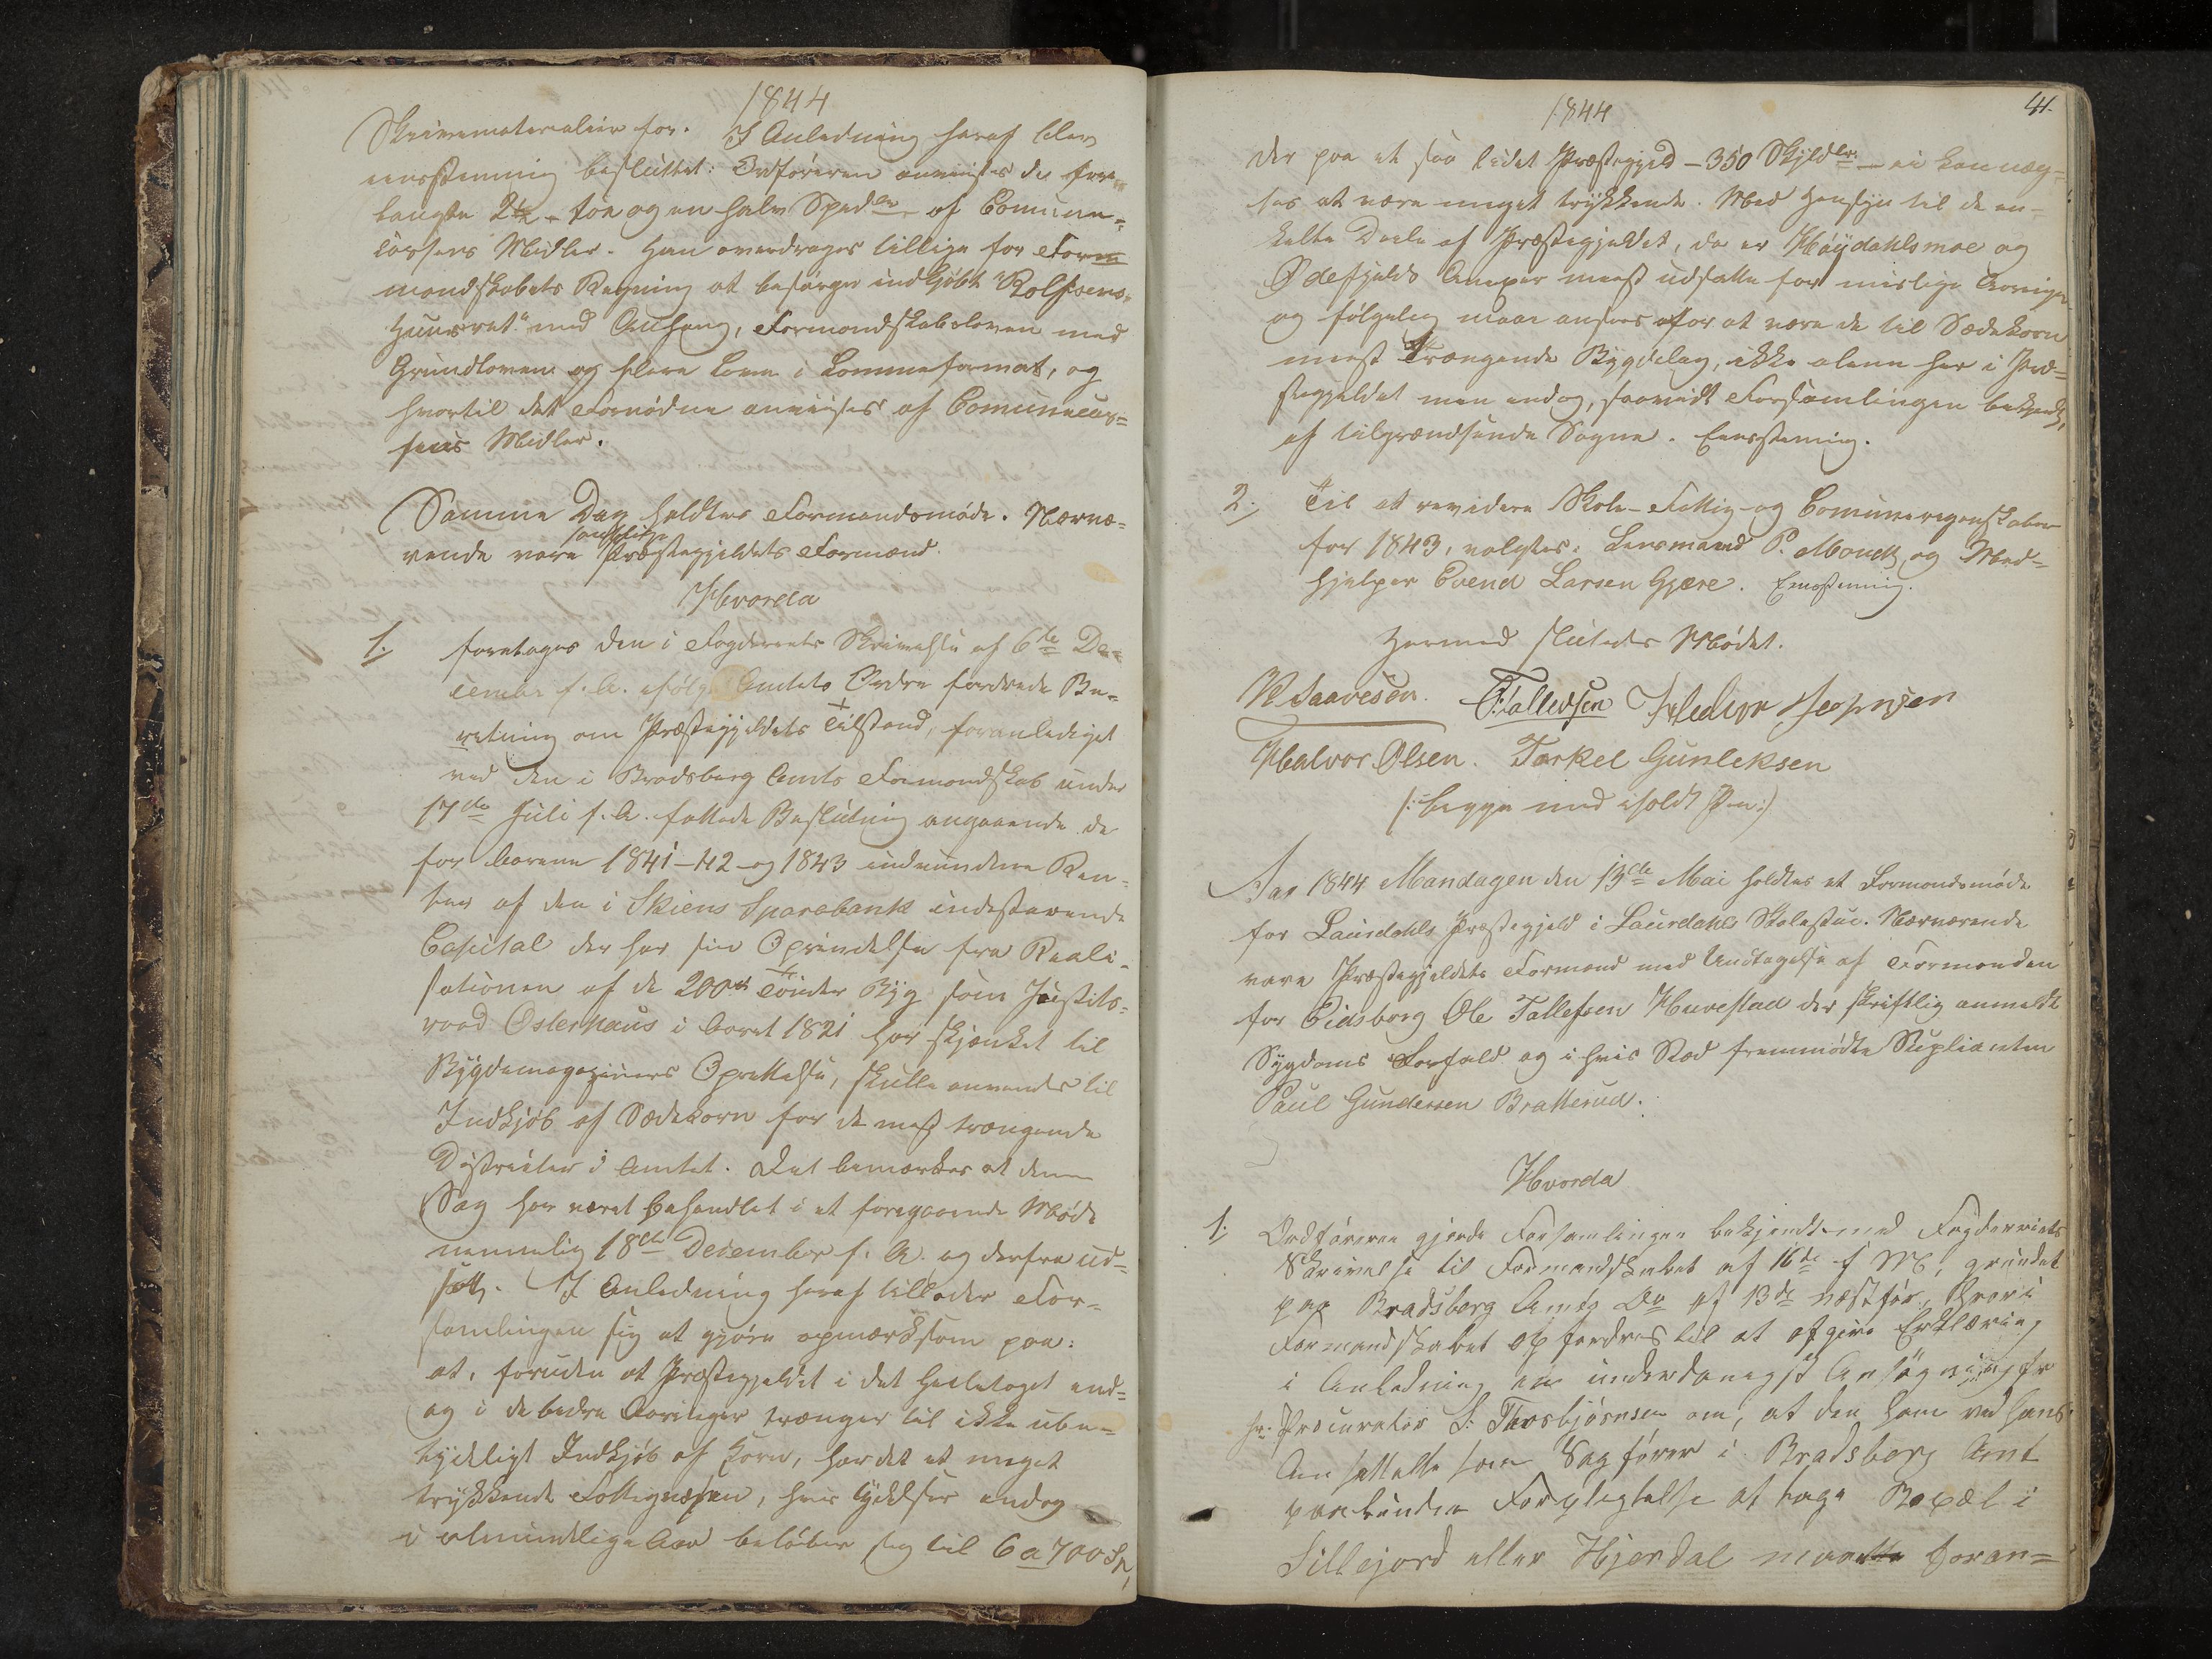 1844
Skrivematerialier for. I Anledning heraf blev
eensstemmig besluttet: Ordføreren anvises de for-
langte 2½ - toe og en halv Spedlr af Comune-
cassens Midler. Han overdrages tillige for Form
mandskabets Regning at besørge indkjøbt "Rolfsens
Huusret" med Anhang, Formandskabsloven med
Grundloven og flere Love i Lommeformat, og
hvortil det Fornødne anvises af Comunecas-
sens Midler.
Samme Dag holdtes Formandsmøde. Nærvæ-
rende vare samtlige Præstegjeldets Formænd.
Hvorda
1. foretages den i Fogderiets Skrivelse af 6te De-
cember f. A. ifølge Amtets Ordre fordrede Be-
retning om Præstegjeldets Tilstand, foranlediget
ved den i Bradsberg Amts Formandskab under
17de Juli f. A. fattede Beslutning angaaende de
for Aarene 1841-42-og 1843 indvundne Ren-
ter af den i Skiens Sparebank indestaaende
Capital der har sin Oprindelse fra Reali-
sationen af de 200de Tønder Byg som Justits-
raad Osterhaus i Aaret 1821 har skjænket til
Bygdemagaziners Oprettelse, skulle anvendes til
Indkjøb af Sædekorn for de mest trængende
Districter i Amtet. Det bemærkes at denne
Sag har været behandlet i et foregaaende Møde
nemmelig 18de December f. A. og derfra ud-
sat. I Anledning heraf tillader For-
samlingen sig at gjøre opmærksom paa:
at, foruden at Præstegjeldet i det Heeletaget end-
og i de bedre Aaringer trænger til ikke ube-
tydeligt Indkjøb af Korn, har det et meget
trykkende Fattigvæsen, hvis Ydelser endog
i almindelige Aar beløber sig til 6 a 700 Sp,
41.
1844
der paa et saa lidet Præstegjeld - 350 Skyldlr. - ei kan næg-
tes at være meget trykkende. Med Hensyn til de en-
kelte Deele af Præstegjeldet, da er Høydahlsmoe og
Ødefjelds Annexer meest udsatte for mislige Aaringer
og følgelig maae ansees for at være de til Sædekorn
meest Trængende Bygdelag, ikke alene her i Præ-
stegjeldet men endog, saavidt Forsamlingen bekjendt,
af tilgrændsende Sogne. Eensstemmig.
2. Til at revidere Skole- Fattig- og Comuneregnskaber
for 1843, valgtes: Lensmand P. Mouck og Med-
hjelper Evend Larsen Gjære. Eensstemmig.
Hermed sluttedes Mødet.
N Saavesen. O. Tallevsen
Halvor Olsen. Torkel Gunleksen
(: begge med iholdt Pen:)
Aar 1844 Mandagen den 13de Mai holdtes et Formandsmøde
for Laurdahls Præstegjeld i Laurdahls Skolestue. Nærværende
vare Præstegjeldets Formænd med Undtagelse af Formanden
for Eidsborg Ole Tallefsen Huvestad der skriftlig anmeldte
Sygdoms Forfald og i hvis Sted fremmødte Suplianten
Paul Gundersen Bratterud.
Hvorda
1. Ordføreren gjorde Forsamlingen bekjendt med Fogderiets
Skrivelse til Formandskabet af 16de f. M., grundet
paa Bradsberg Amts Do af 13de næstfør, hvori
Formandskabet opfordres til at afgive Erklæring
i Anledning en underdanigst Ansøgning fr
Hr. Procurator S. Thorbjørnsen om, at den ham ved hans
Ansættelse som Sagfører i Bradsberg Amt
paabundne Forpligtelse at tage Bopæl i
Sillejord eller Hjerdal maatte foran-